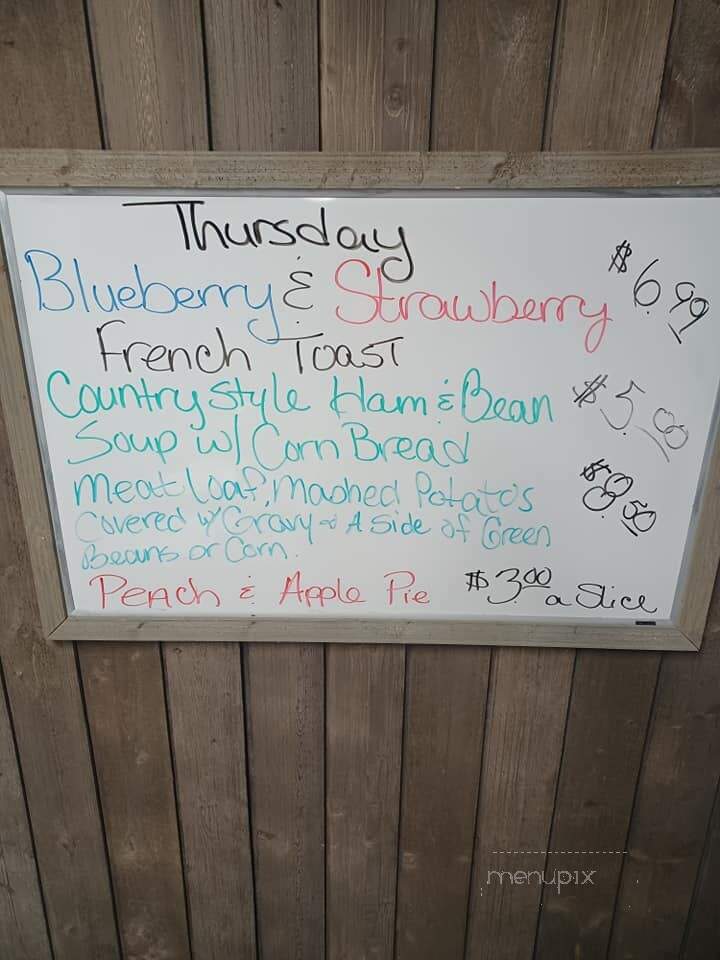 Thursday
Blueberry & Strawberry $6.99
French Toast
Country style Ham & Bean $5.00
Soup w/ Corn Bread
Meat loaf, Mashed Potato's $8.50
Covered w/ Gravy & A side of Green
Beans or Corn.
Peach & Apple Pie $3.00 a Slice
menupix